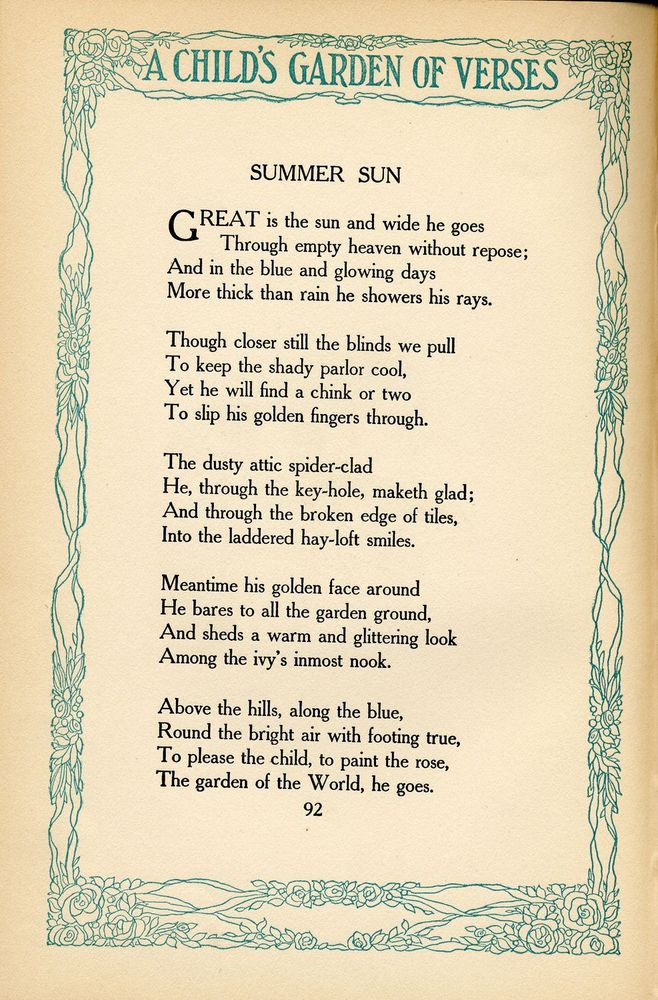 A CHILD'S GARDEN OF VERSES
SUMMER SUN
GREAT is the sun and wide he goes
Through empty heaven without repose;
And in the blue and glowing days
More thick than rain he showers his rays.
Though closer still the blinds we pull
To keep the shady parlor cool,
Yet he will find a chink or two
To slip his golden fingers through.
The dusty attic spider-clad
He, through the key-hole, maketh glad;
And through the broken edge of tiles,
Into the laddered hay-loft smiles.
Meantime his golden face around
He bares to all the garden ground,
And sheds a warm and glittering look
Among the ivy's inmost nook.
Above the hills, along the blue,
Round the bright air with footing true,
To please the child, to paint the rose,
The garden of the World, he goes.
92